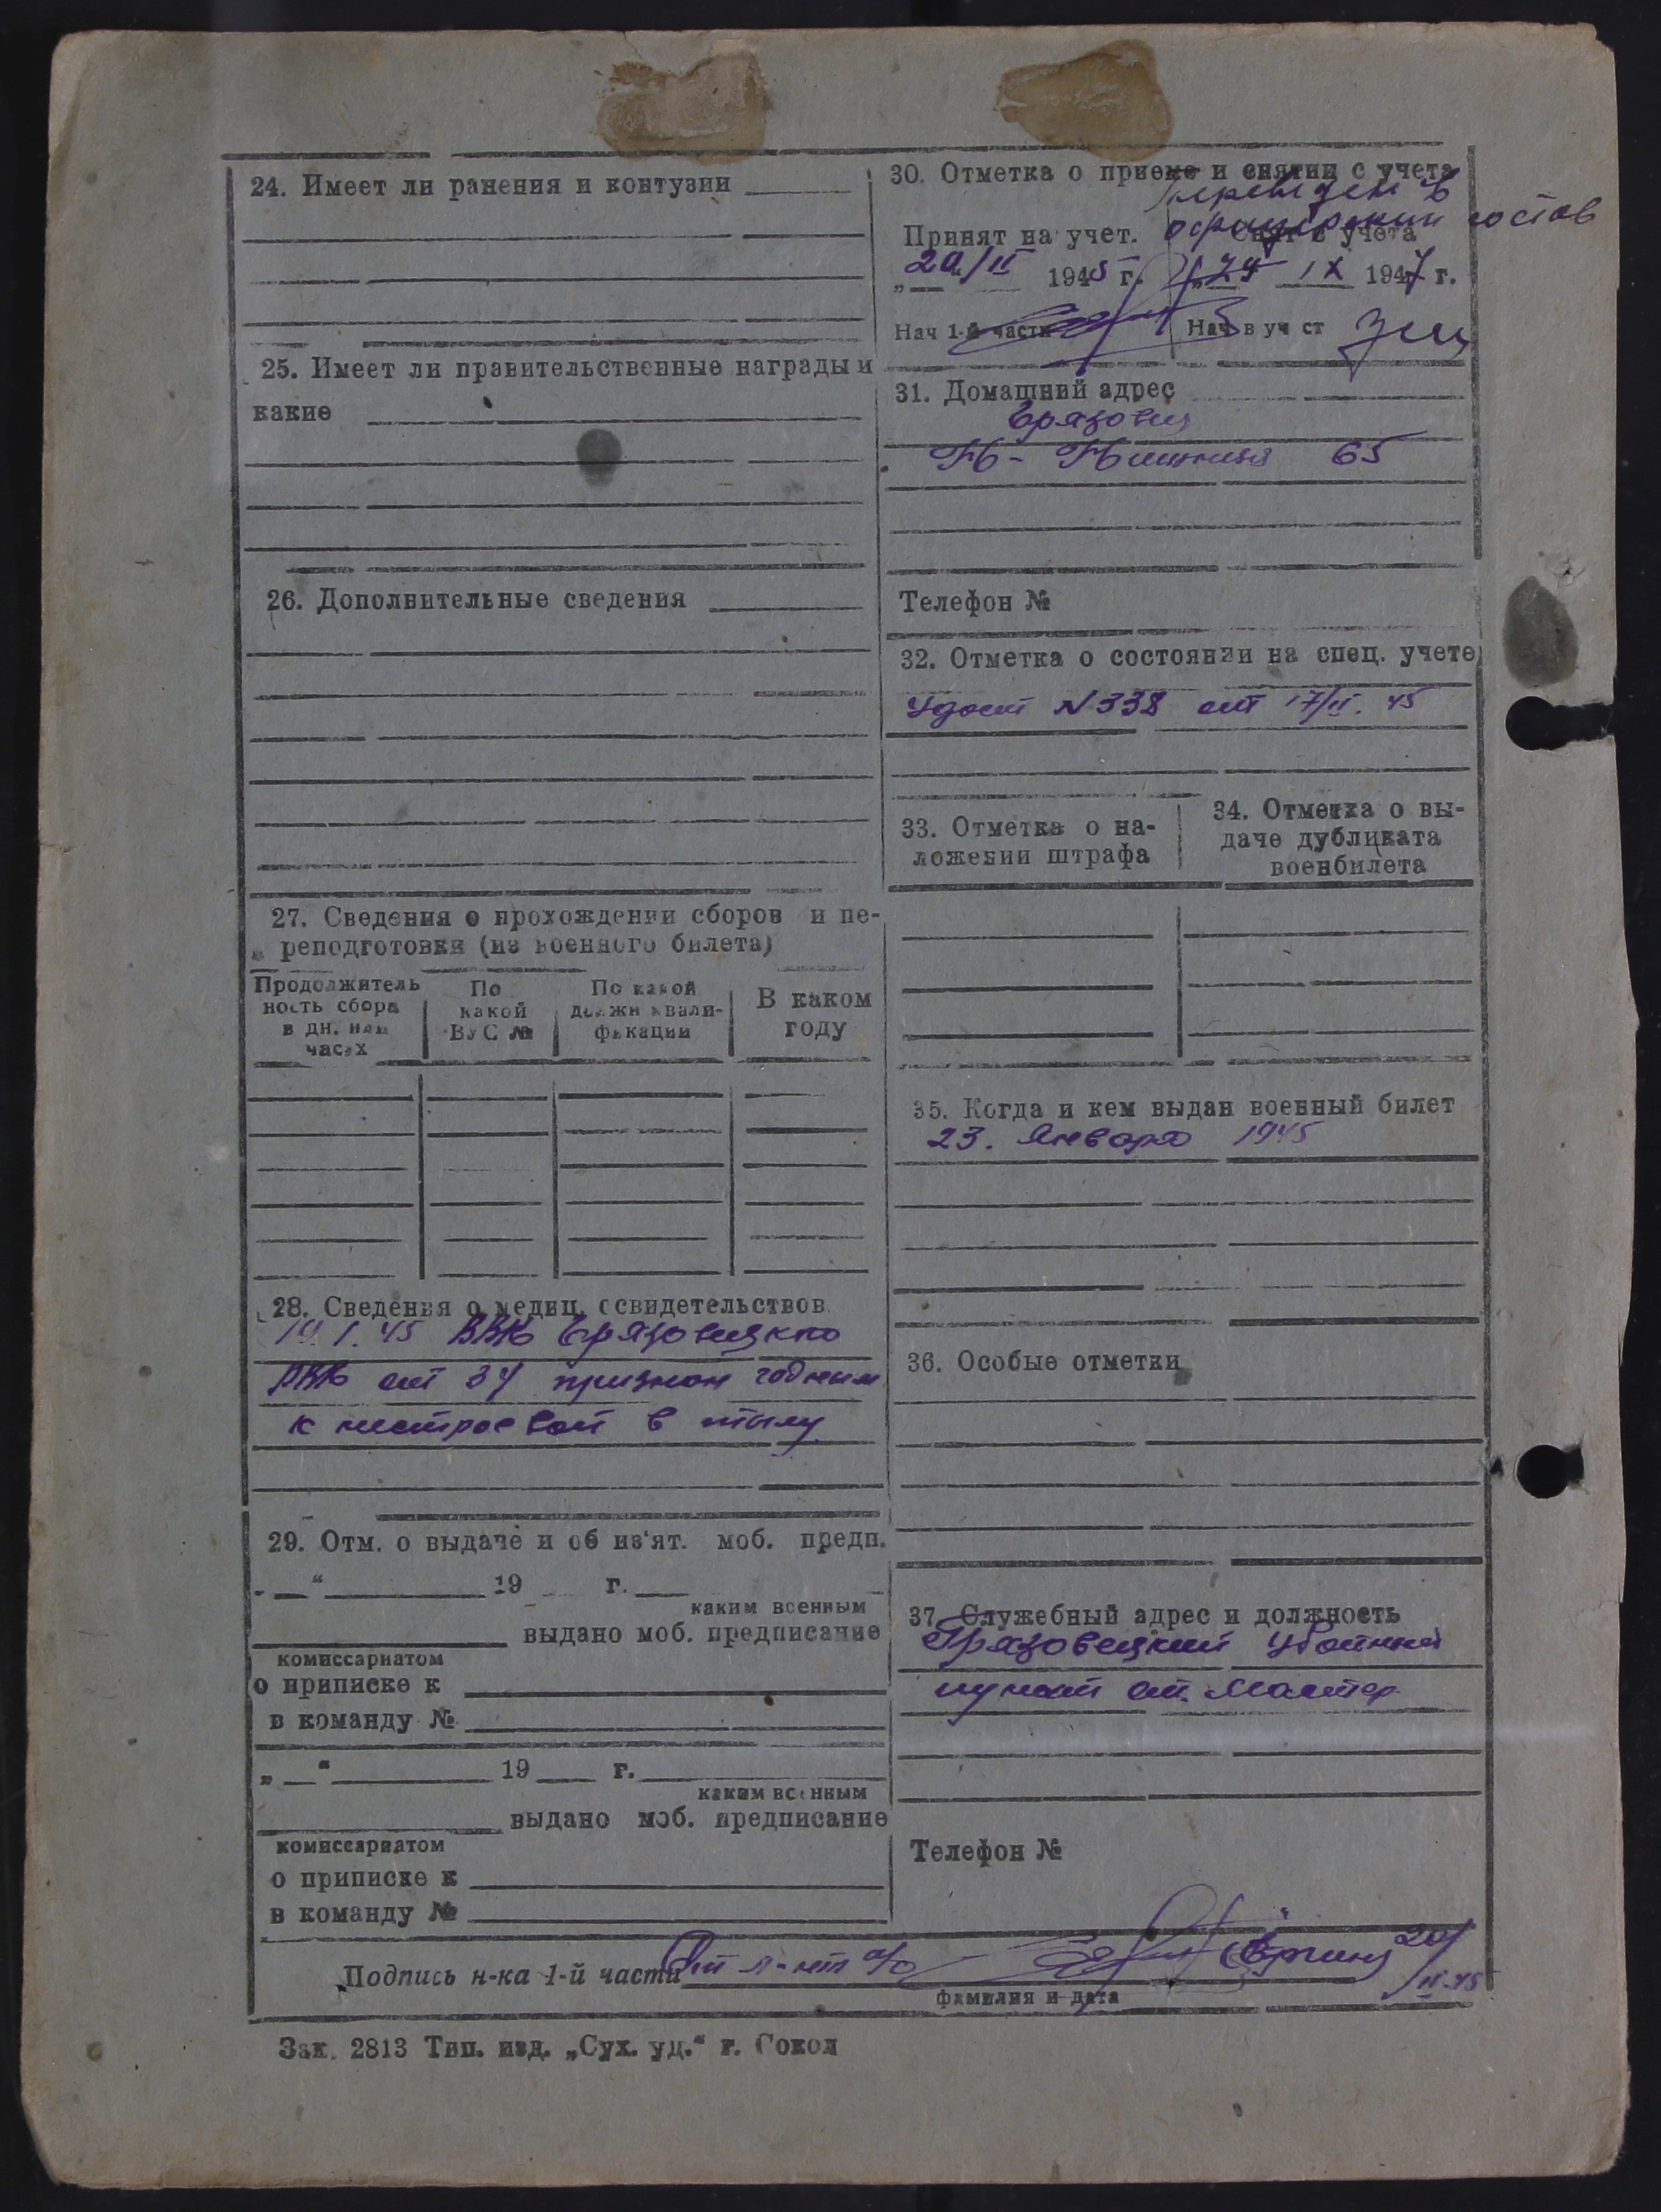 24. Имеет ли ранения и контузии
25. Имеет ли правительственные награды и
какие
26. Дополнительные сведения
27. Сведения о прохождении сборов и пе-
реподготовки (из военного билета)
Продолжитель
ность сбора
в дн. или
часах
По
какой
ВУС №
По какой
должн квали-
фикации
В каком
году
28. Сведения о медиц. освидетельствов.
19.I.45 ВВК Грязовецкго
РВК ст 34 признан годным
к нестроевой в тылу
29. Отм. о выдаче и об из'ят. моб. предп.
„ “ 19 г.
каким военным
выдано моб. предписание
комиссариатом
о приписке к
в команду №
„ “ 19 г.
каким военным
выдано моб. предписание
комиссариатом
о приписке к
в команду №
30. Отметка о приеме и снятии с учета
Переведен в
офицерский состав
Принят на учет.
20/II 1945 г.
Нач 1-й части
Снят с учета
„24 IX 1947 г.
Нач в уч ст
31. Домашний адрес
Грязовец
65
Телефон №
32. Отметка о состоянии на спец. учете
Удост N338 от 17/II.45
33. Отметка о на-
ложении штрафа
34. Отметка о вы-
даче дубликата
военбилета
35. Когда и кем выдан военный билет
23. Января 1945
36. Особые отметки
37. Служебный адрес и должность
Грязовецкий Убойный
пункт ст. Мастер
Телефон №
Подпись н-ка 1-й части Ст л-нт а/с 20/II-45
фамилия и дата
Зак. 2813 Тип. изд. „Сух. уд.“ г. Сокол